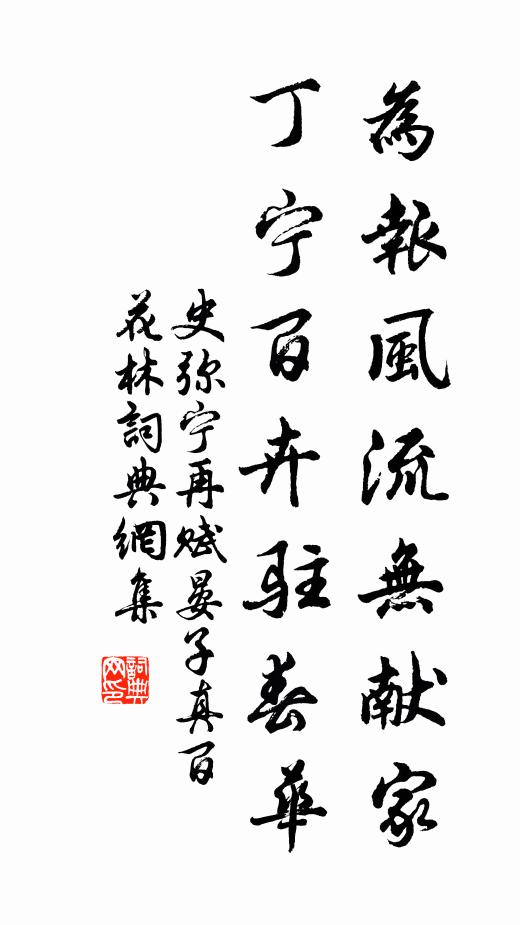 為報風流無献家
丁宁百卉駐春華
史弥宁再赋晏子真百
花林詞典網集
詞典网印